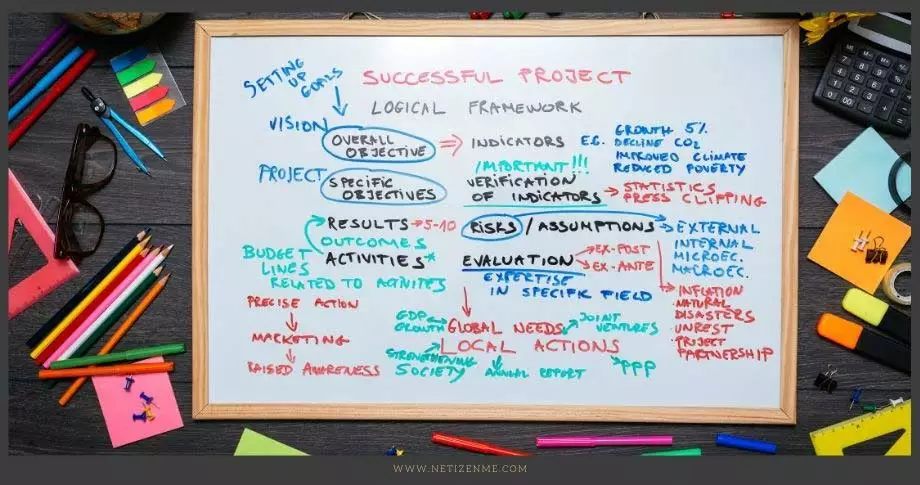 SETTING
UP
GOALS
SUCCESSFUL PROJECT
LOGICAL FRAMEWORK
VISION
OVERALL
OBJECTIVE
INDICATORS E.G.
GROWTH 5%
DECLINE CO2
IMPROVED CLIMATE
REDUCED POVERTY
PROJECT
SPECIFIC
OBJECTIVES
IMPORTANT!!!
VERIFICATION
OF INDICATORS
STATISTICS
PRESS CLIPPING
RESULTS → 5-10
OUTCOMES
ACTIVITIES*
RISKS / ASSUMPTIONS
EXTERNAL
INTERNAL
MICROEC.
MACROEC.
BUDGET
LINES
RELATED TO
EVALUATION
EX-POST
EX-ANTE
EXPERTISE
IN SPECIFIC FIELD
INFLATION
NATURAL
DISASTERS
UNREST
PROJECT
PARTNERSHIP
PRECISE ACTION
MARKETING
RAISED AWARENESS
GDP
GROWTH
GLOBAL NEEDS
LOCAL ACTIONS
JOINT
VENTURES
STRENGTHENING
SOCIETY
ANNUAL REPORT
PPP
WWW.NETIZENME.COM